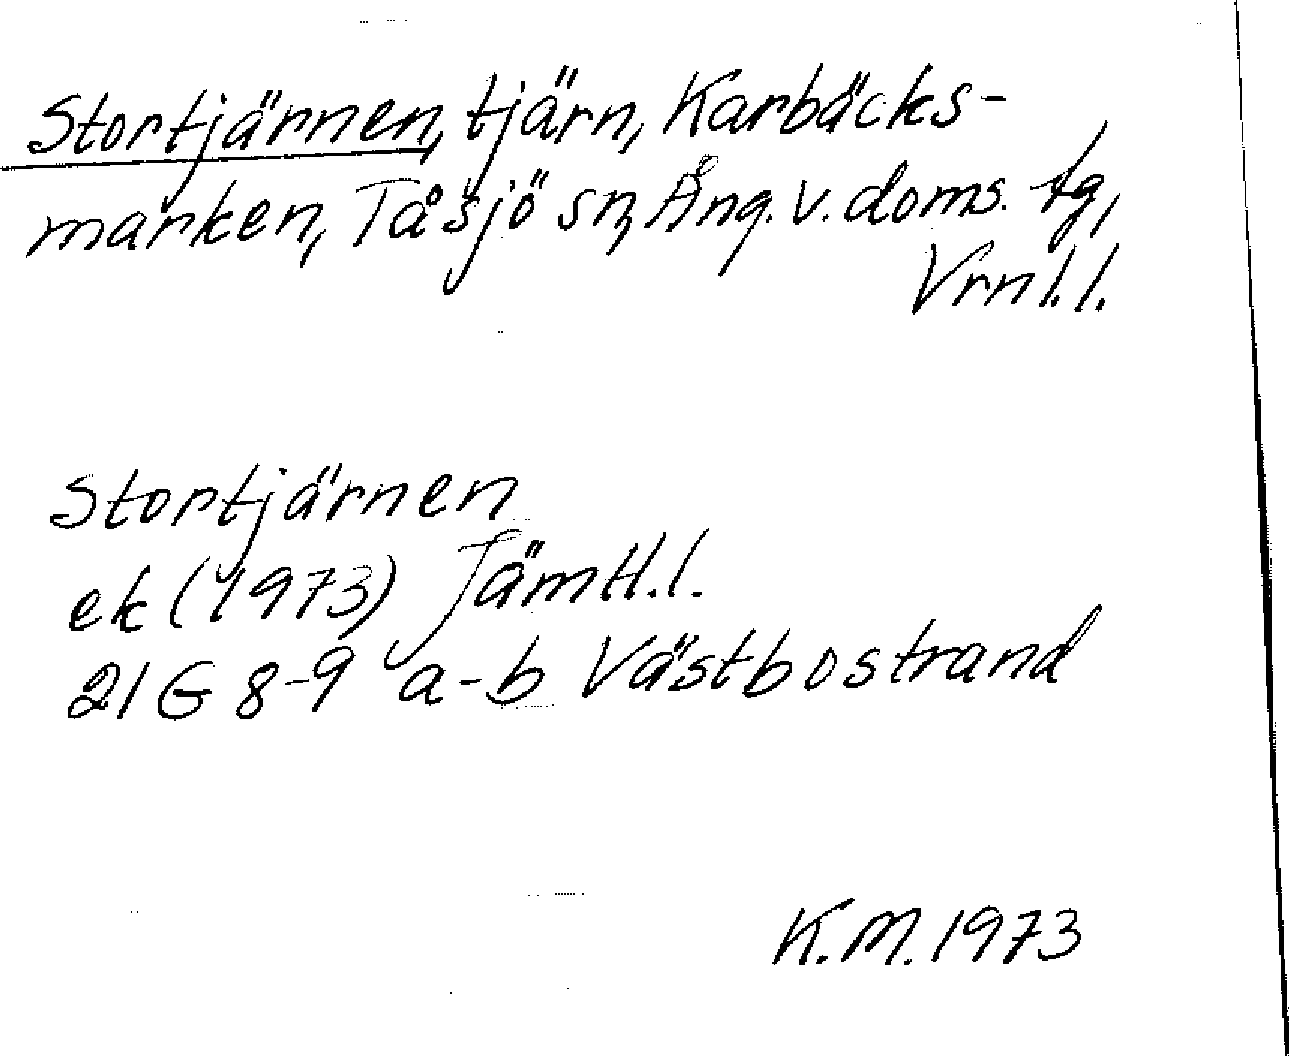 Stortjärnen, tjärn, Karbäcks-
marken, Tåsjö sn, Ång. v. doms. tg,
Vrnl. l.
Stortjärnen
ek (1973) Jämtl. l.
21 G 8-9 a-b Västbostrand
K.M. 1973